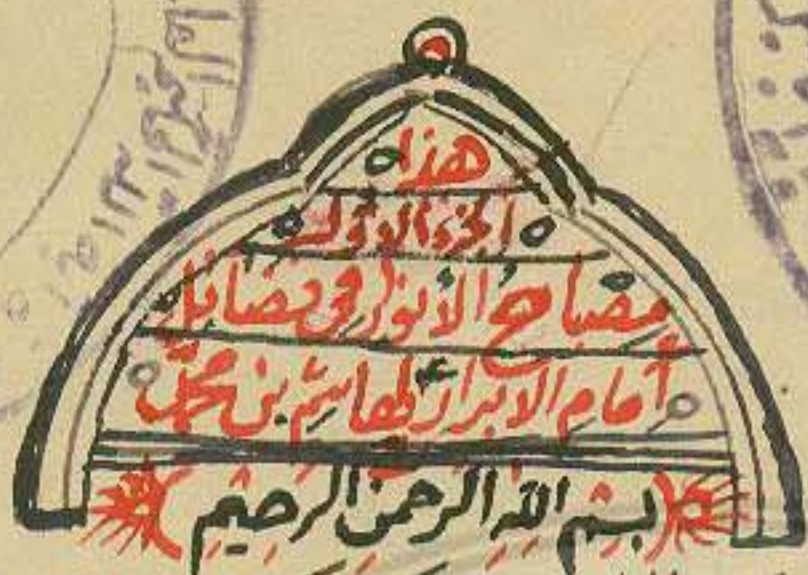 هذا
الجزء الاول
مصباح الأنوار في فضايل
امام الابرار لهاشم بن محمد
بسم الله الرحمن الرحيم